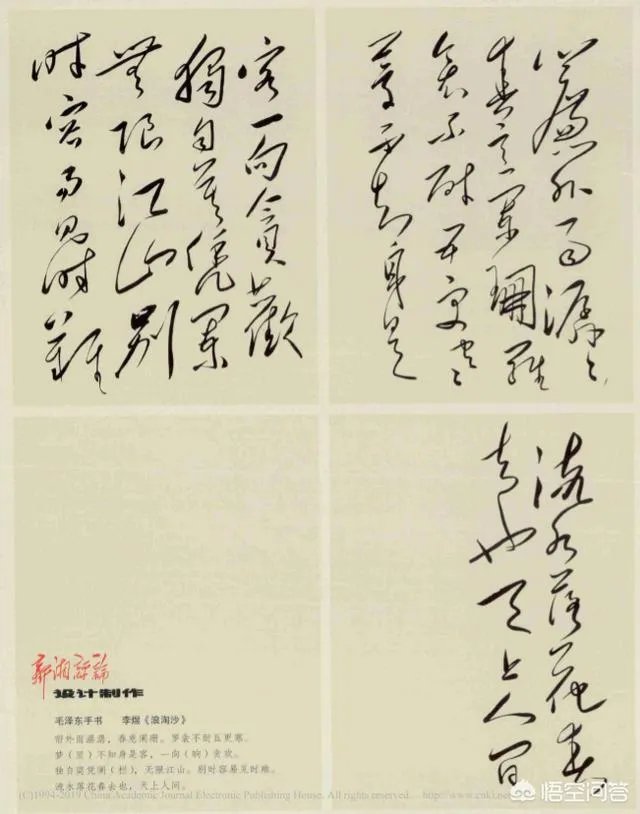 簾外雨潺々
春意闌珊羅
衾不耐五更寒
夢不知身是
客一向貪歡
獨自莫憑闌
無限江山别
時容易見時難
流水落花春
去也天上人間
新湘評論
设计制作
毛泽东手书 李煜《浪淘沙》
帘外雨潺潺，春意阑珊。罗衾不耐五更寒。
梦（里）不知身是客，一向（晌）贪欢。
独自莫凭阑（栏），无限江山。别时容易见时难。
流水落花春去也，天上人间。
(C)1994-2019 China Academic Journal Electronic Publishing House. All rights reserved. http://www.cnki.net
悟空问答